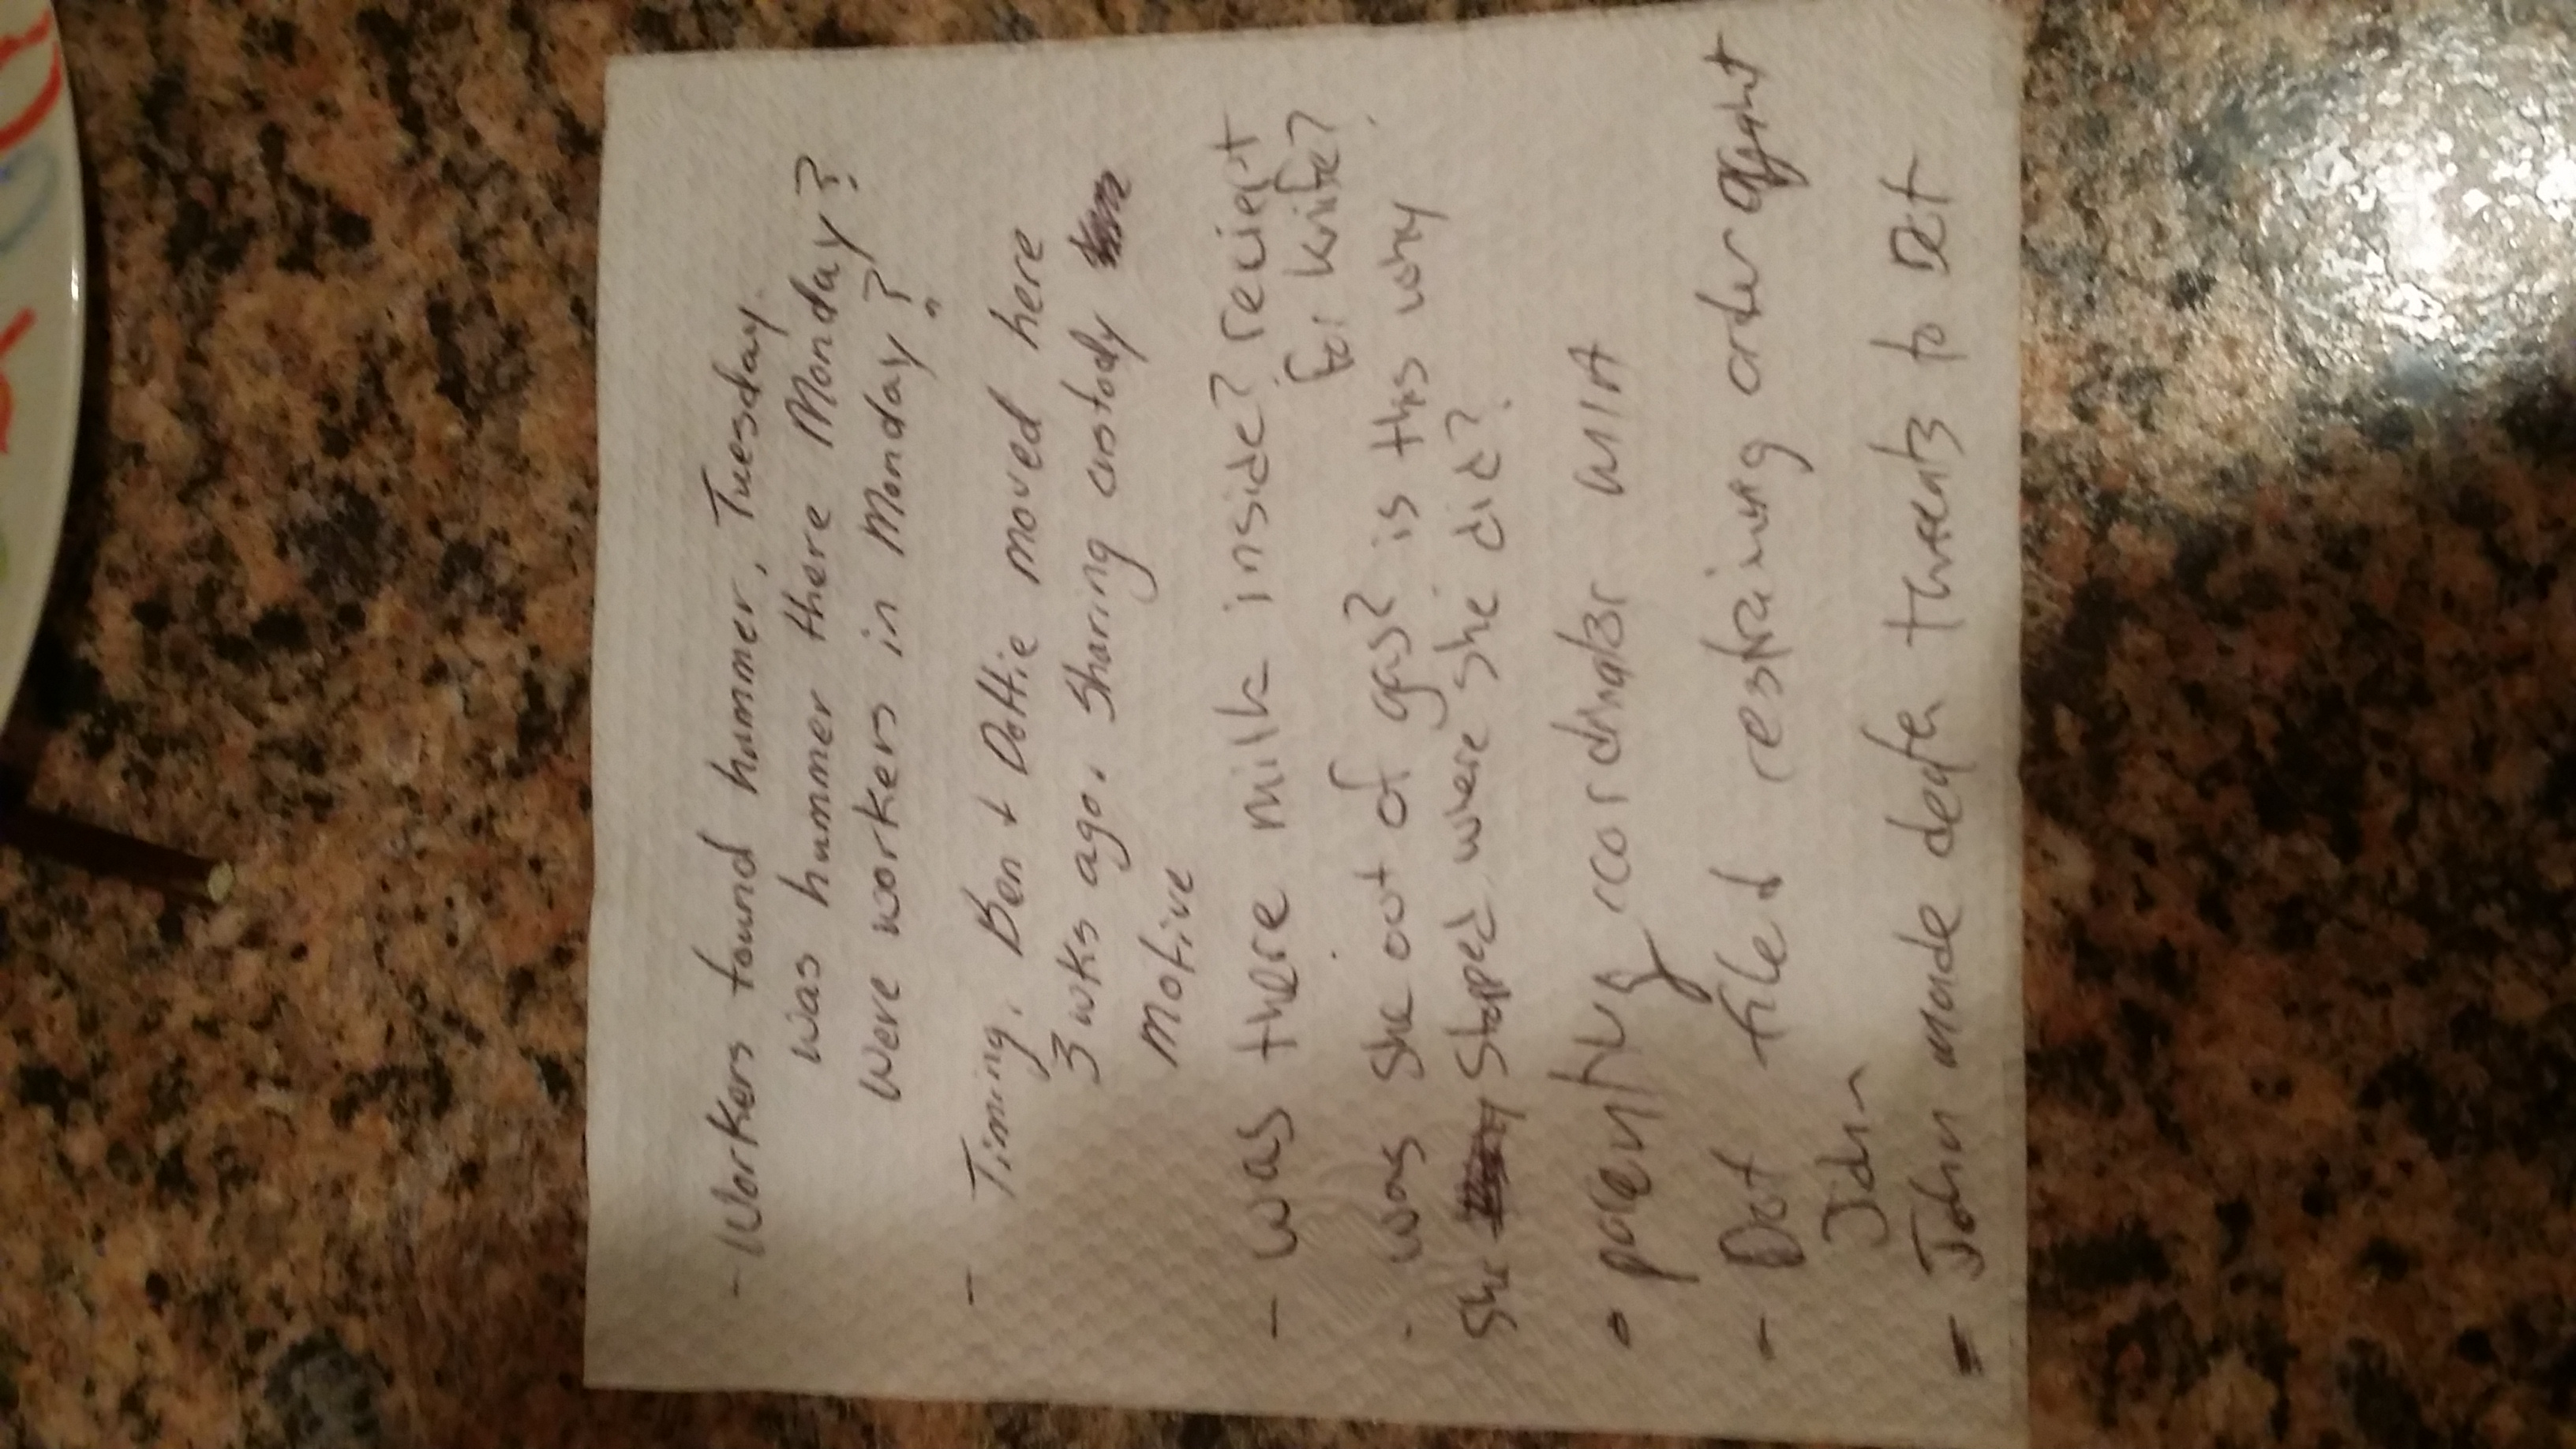 - Workers found hummer, Tuesday.
was hummer there Monday?
were workers in Monday?
- Timing. Ben + Dottie moved here
3 wks ago. Sharing custody
motive
- was there milk inside? reciept
for knife?
- was she out of gas? is this why
she stopped where she did?
• parenting coordinator MIA
- Dot filed restraining order against
John
- John made death threats to Dot